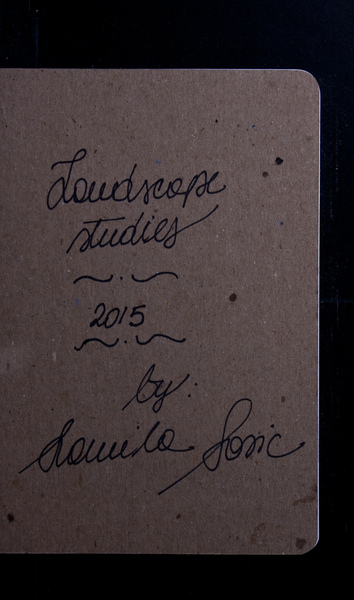 Landscape
studies
2015
by:
Kamila Sosic